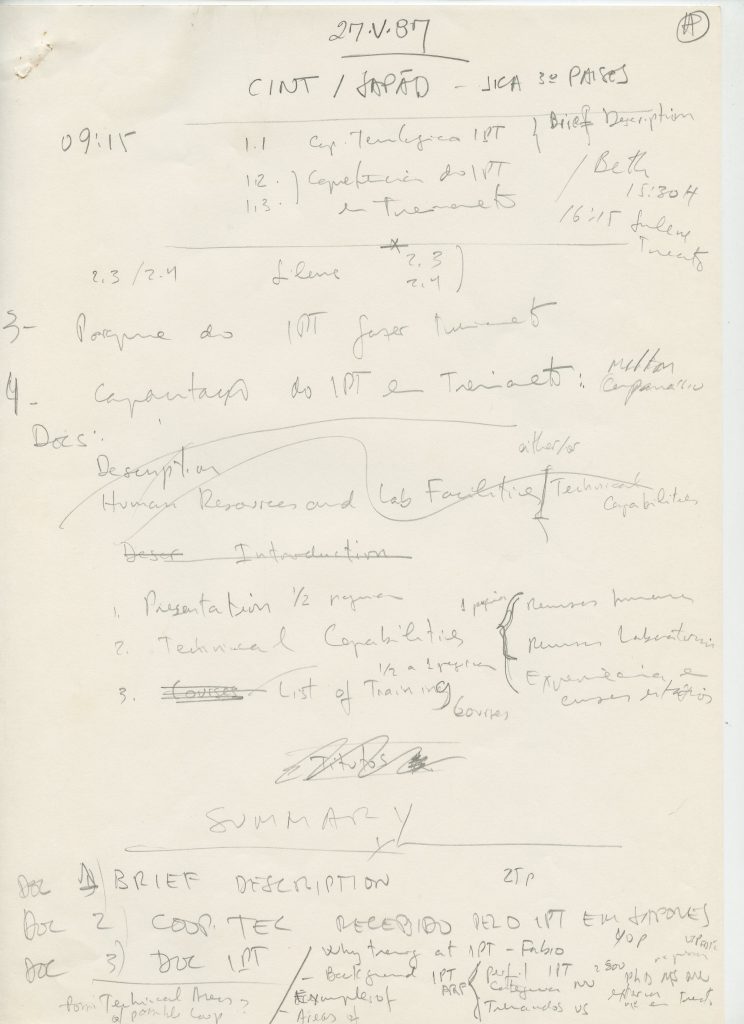 27.V.87
CINT / JAPÃO - JICA 3º PAISES
09:15
1.1 Cap. Tecnologica IPT } Brief Description
1.2. Capacitacion do IPT / Beth
1.3. em Treinamento 15:30H
16:15 Silene
2.3 / 2.4 Silene 2.3
2.4
3- Porque do IPT fazer treinamento
4. Capacitação do IPT em Treinamento: Milton Campanário
Docs:
Description
either/or
Human Resources and Lab Facilities / Technical Capabilities
Descr Introduction
1. Presentation 1/2 pagina
2. Technical Capabilities
1 pagina { Recursos humanos
Recursos Laboratoriais
Experiência em cursos estágios
1/2 a 1 pagina
3. Courses List of Training Courses
Titulos
SUMMARY
DOC 1) BRIEF DESCRIPTION 25p
DOC 2) COOP. TEC RECEBIDO PELO IPT EM JAPONES
40p
DOC 3) DOC IPT / Why training at IPT - Fabio
- Background IPT
Perfil IPT
Examples of
Treinandos
Technical Areas of possible Coop
Areas of